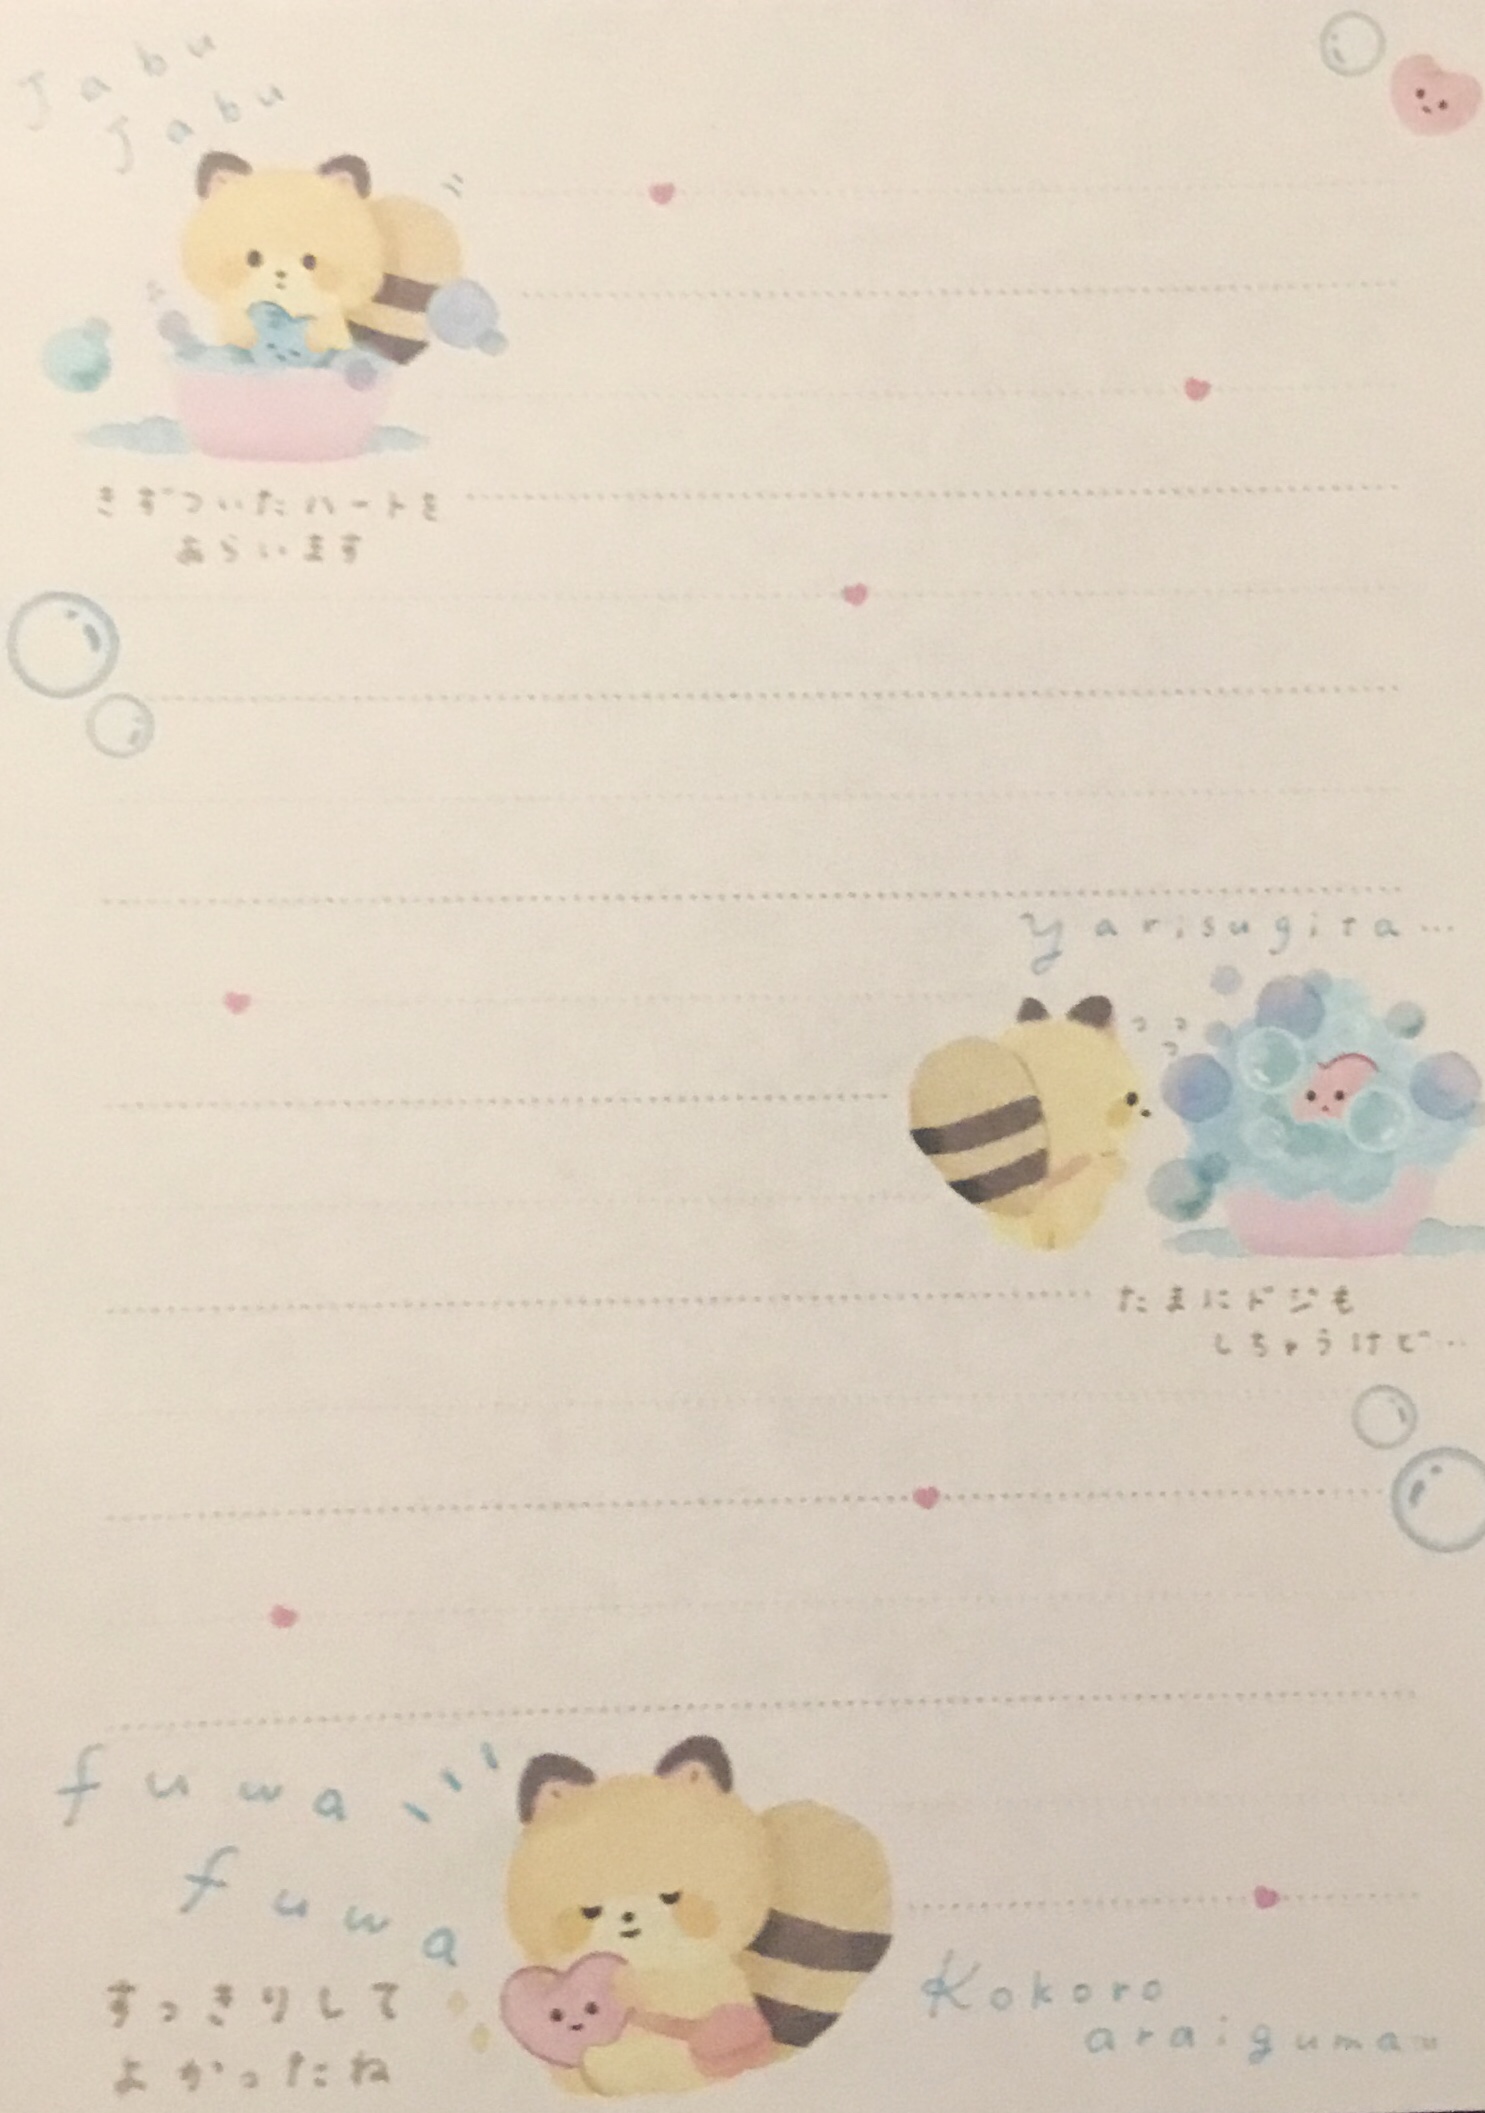 Jabu
Jabu
きずついたハートを
あらいます
yarisugita…
たまにドジも
しちゃうけど…
fuwa
fuwa
すっきりして
よかったね
Kokoro
araiguma~